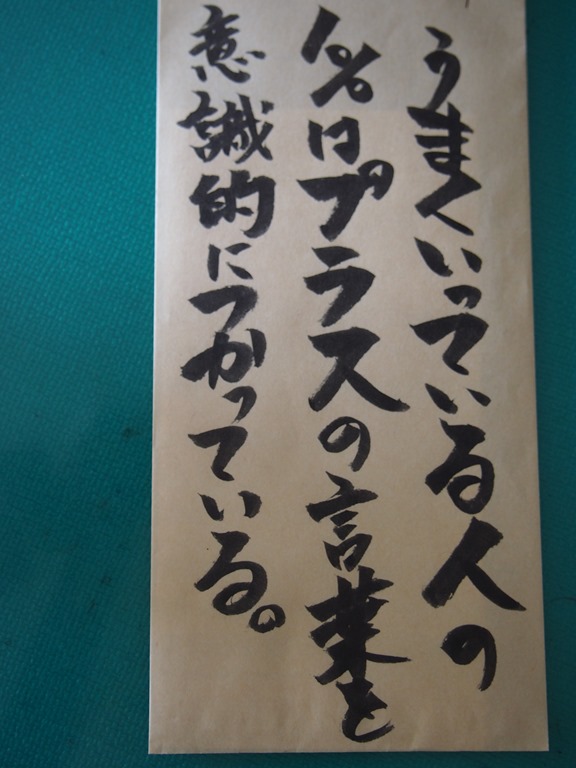 うまくいっている人の
1%はプラスの言葉を
意識的につかっている。